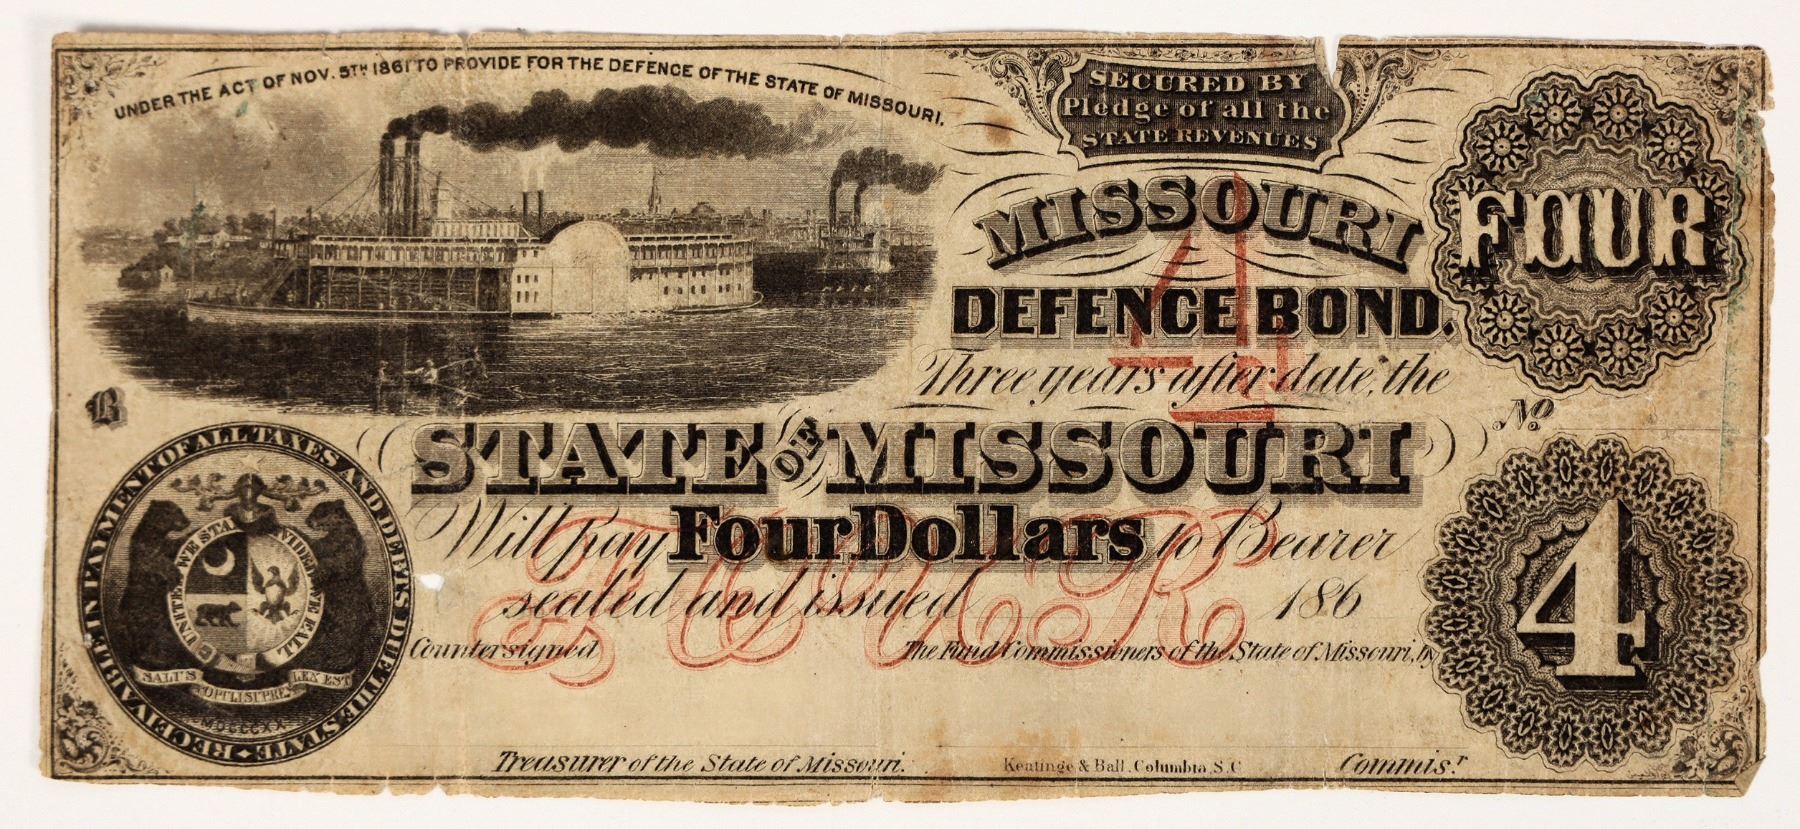 UNDER THE ACT OF NOV. 5TH 1861 TO PROVIDE FOR THE DEFENCE OF THE STATE OF MISSOURI.
SECURED BY
Pledge of all the
STATE REVENUES
MISSOURI
DEFENCE BOND.
FOUR
4
Three years after date, the
B
No.
STATE OF MISSOURI
Will pay Four Dollars to Bearer
FOUR
sealed and issued 186
RECEIVABLE IN PAYMENT OF ALL TAXES AND DUES DUE THE STATE
UNITED WE STAND DIVIDED WE FALL
SALUS POPULI SUPREMA LEX EST
MDCCCXX
Countersigned
The Fund Commissioners of the State of Missouri, by
4
Treasurer of the State of Missouri.
Keatinge & Ball, Columbia, S.C
Commis.r